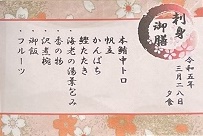 刺身
御膳
令和五年
三月二八日
夕食
本鮪中トロ
帆立
かんぱち
鰹たたき
海老の湯葉包み
・香の物
・沢煮椀
・御飯
・フルーツ